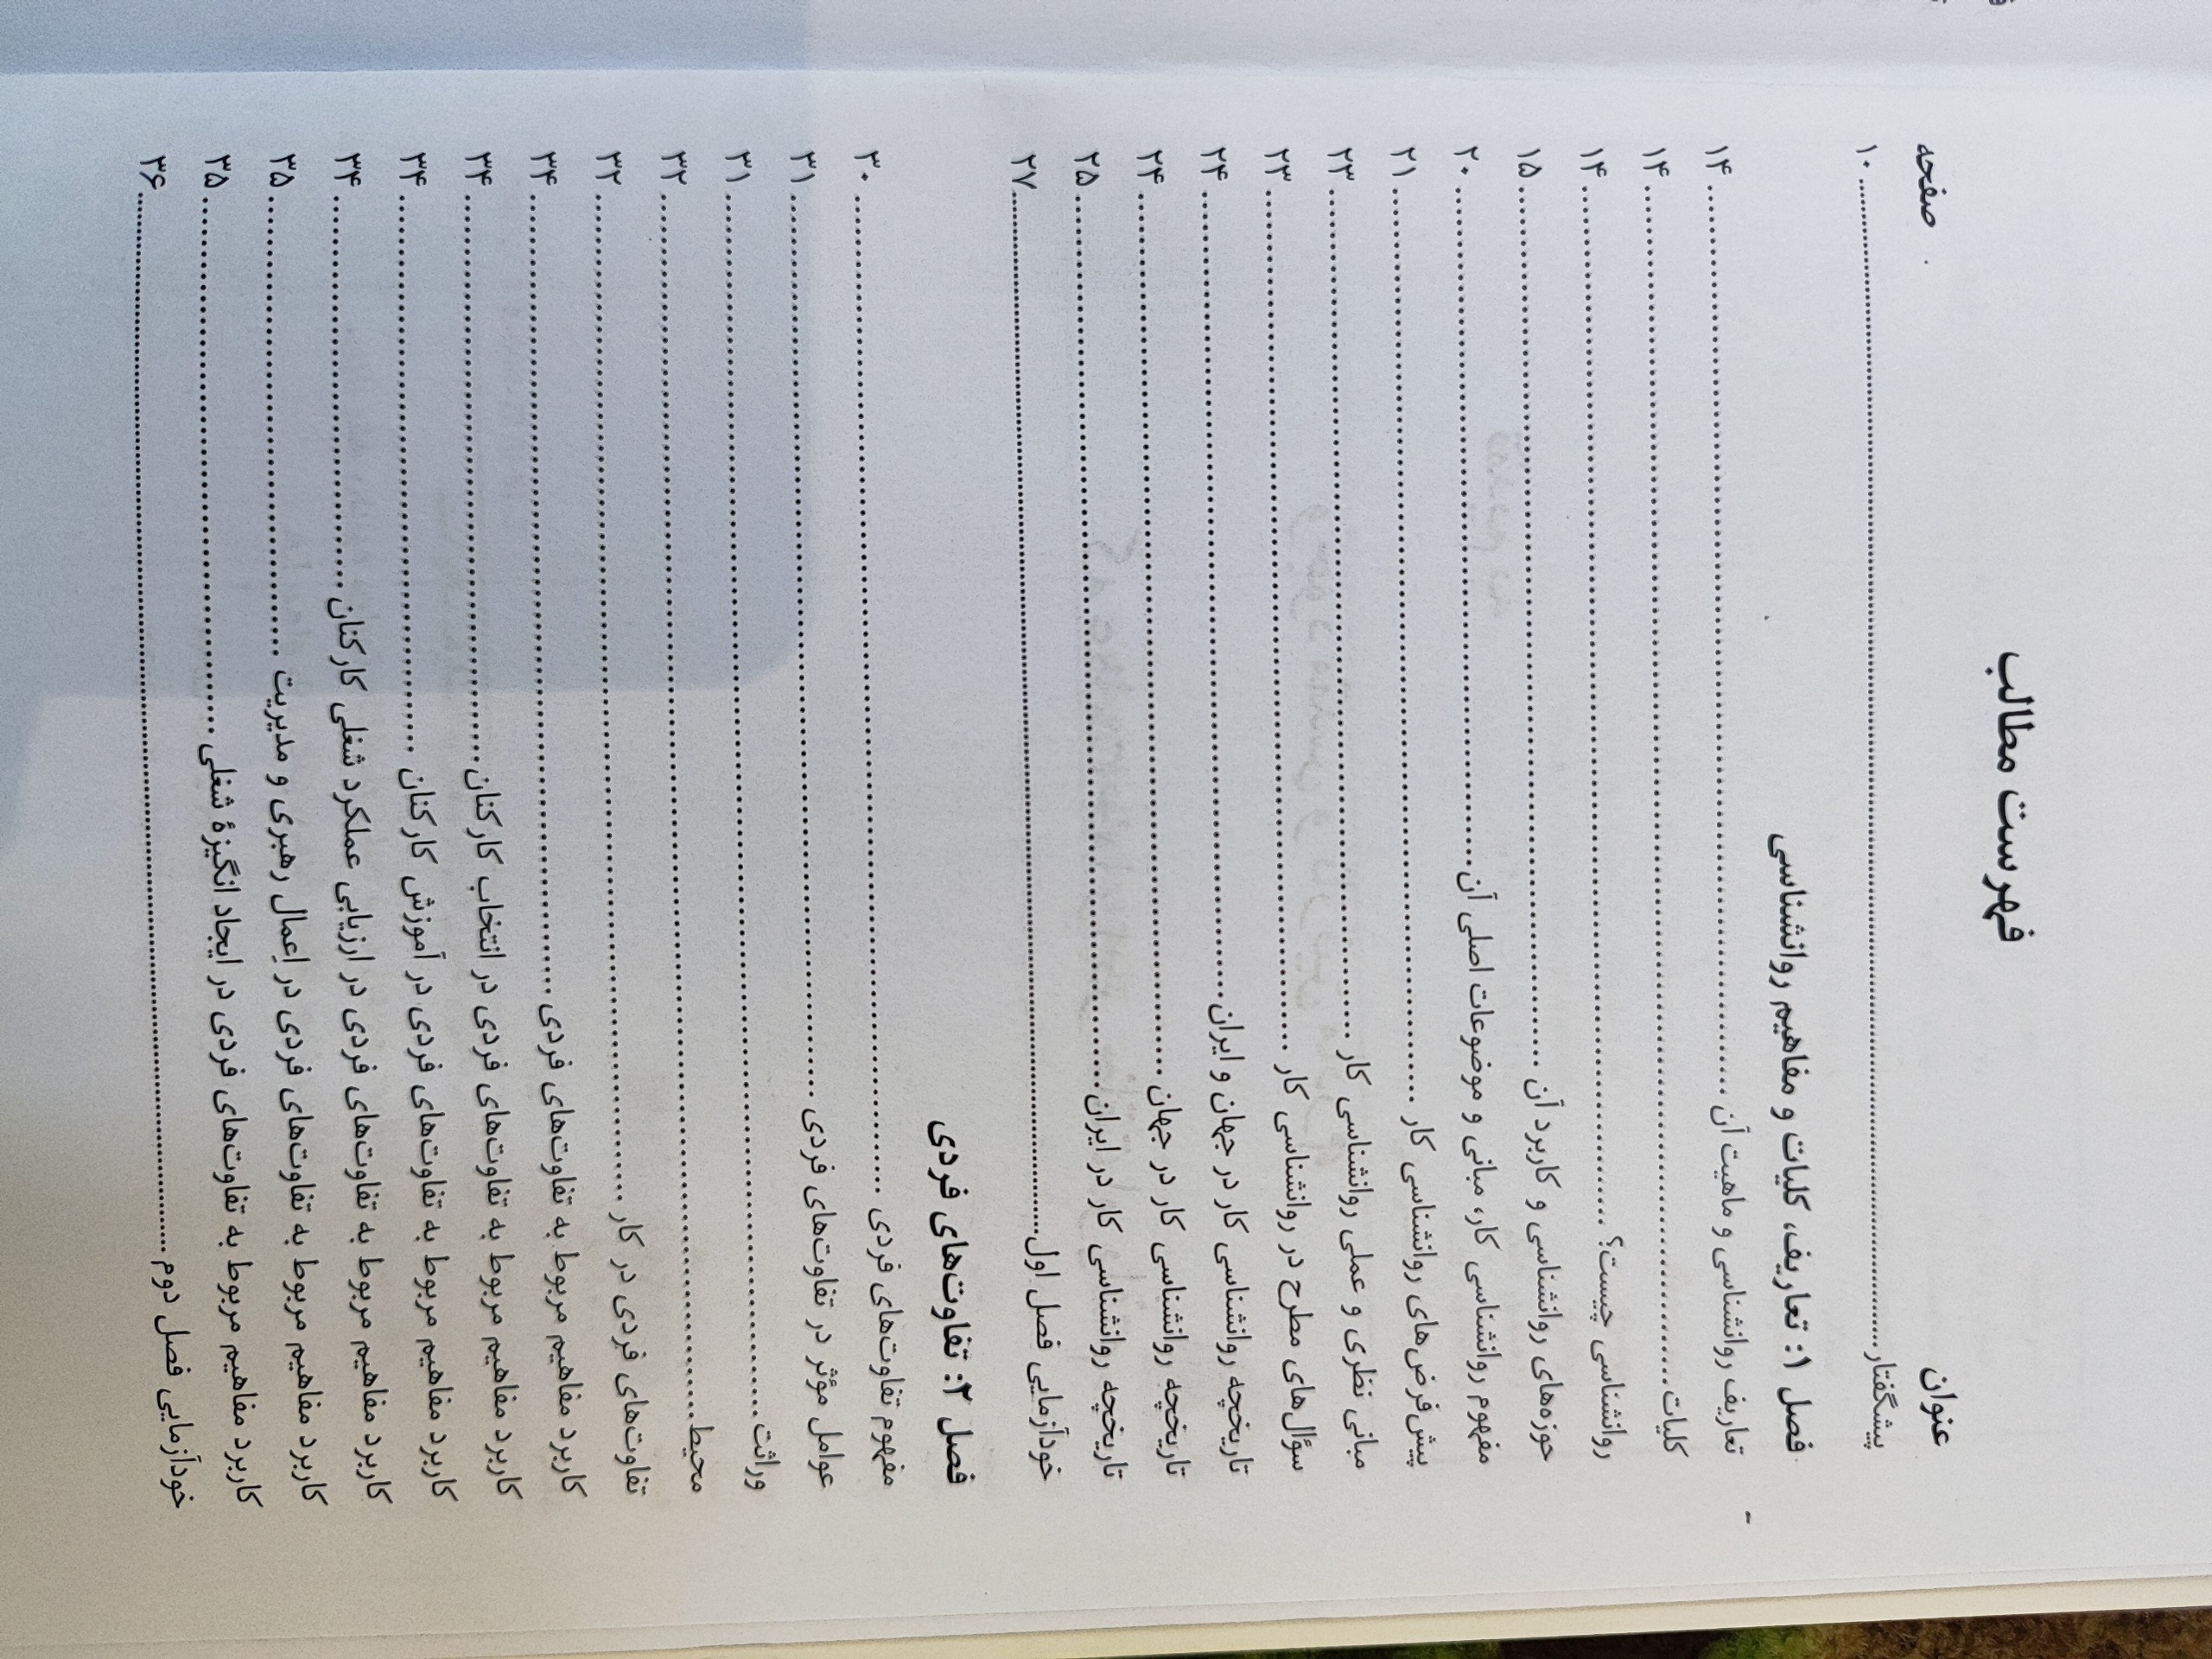 فهرست مطالب
عنوان صفحه
پیشگفتار ۱۰
فصل ۱: تعاریف، کلیات و مفاهیم روانشناسی
تعاریف روانشناسی و ماهیت آن ۱۴
کلیات ۱۴
روانشناسی چیست؟ ۱۴
حوزه‌های روانشناسی و کاربرد آن ۱۵
مفهوم روانشناسی کار، مبانی و موضوعات اصلی آن ۲۰
پیش‌فرض‌های روانشناسی کار ۲۱
مبانی نظری و عملی روانشناسی کار ۲۳
سؤال‌های مطرح در روانشناسی کار ۲۳
تاریخچه روانشناسی کار در جهان و ایران ۲۴
تاریخچه روانشناسی کار در جهان ۲۴
تاریخچه روانشناسی کار در ایران ۲۵
خودآزمایی فصل اول ۲۷
فصل ۲: تفاوت‌های فردی
مفهوم تفاوت‌های فردی ۳۰
عوامل مؤثر در تفاوت‌های فردی ۳۱
وراثت ۳۱
محیط ۳۲
تفاوت‌های فردی در کار ۳۲
کاربرد مفاهیم مربوط به تفاوت‌های فردی ۳۴
کاربرد مفاهیم مربوط به تفاوت‌های فردی در انتخاب کارکنان ۳۴
کاربرد مفاهیم مربوط به تفاوت‌های فردی در آموزش کارکنان ۳۴
کاربرد مفاهیم مربوط به تفاوت‌های فردی در ارزیابی عملکرد شغلی کارکنان ۳۴
کاربرد مفاهیم مربوط به تفاوت‌های فردی در اِعمال رهبری و مدیریت ۳۵
کاربرد مفاهیم مربوط به تفاوت‌های فردی در ایجاد انگیزهٔ شغلی ۳۵
خودآزمایی فصل دوم ۳۶